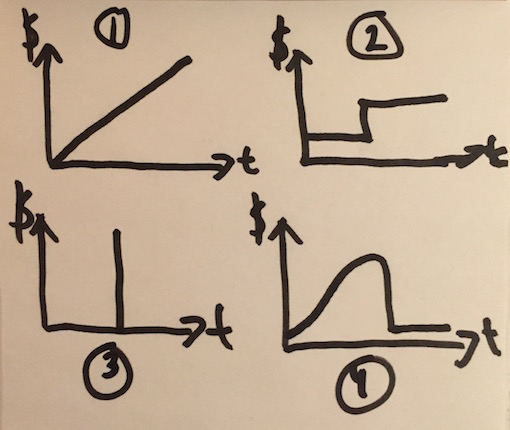 1
$
t
2
$
t
$
t
3
$
t
4